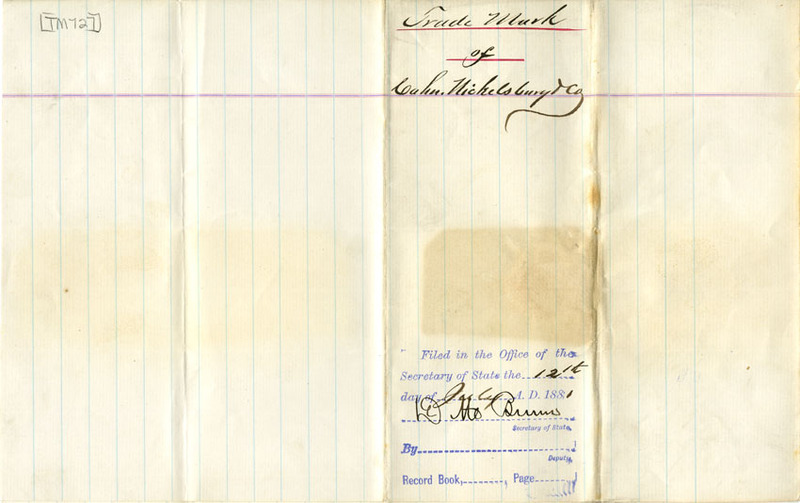 [TM727]
Trade Mark
of
Cahn. Nickelsburg & Co
Filed in the Office of the
Secretary of State the 12th
day of July A. D. 1881
Secretary of State.
By
Deputy.
Record Book, Page